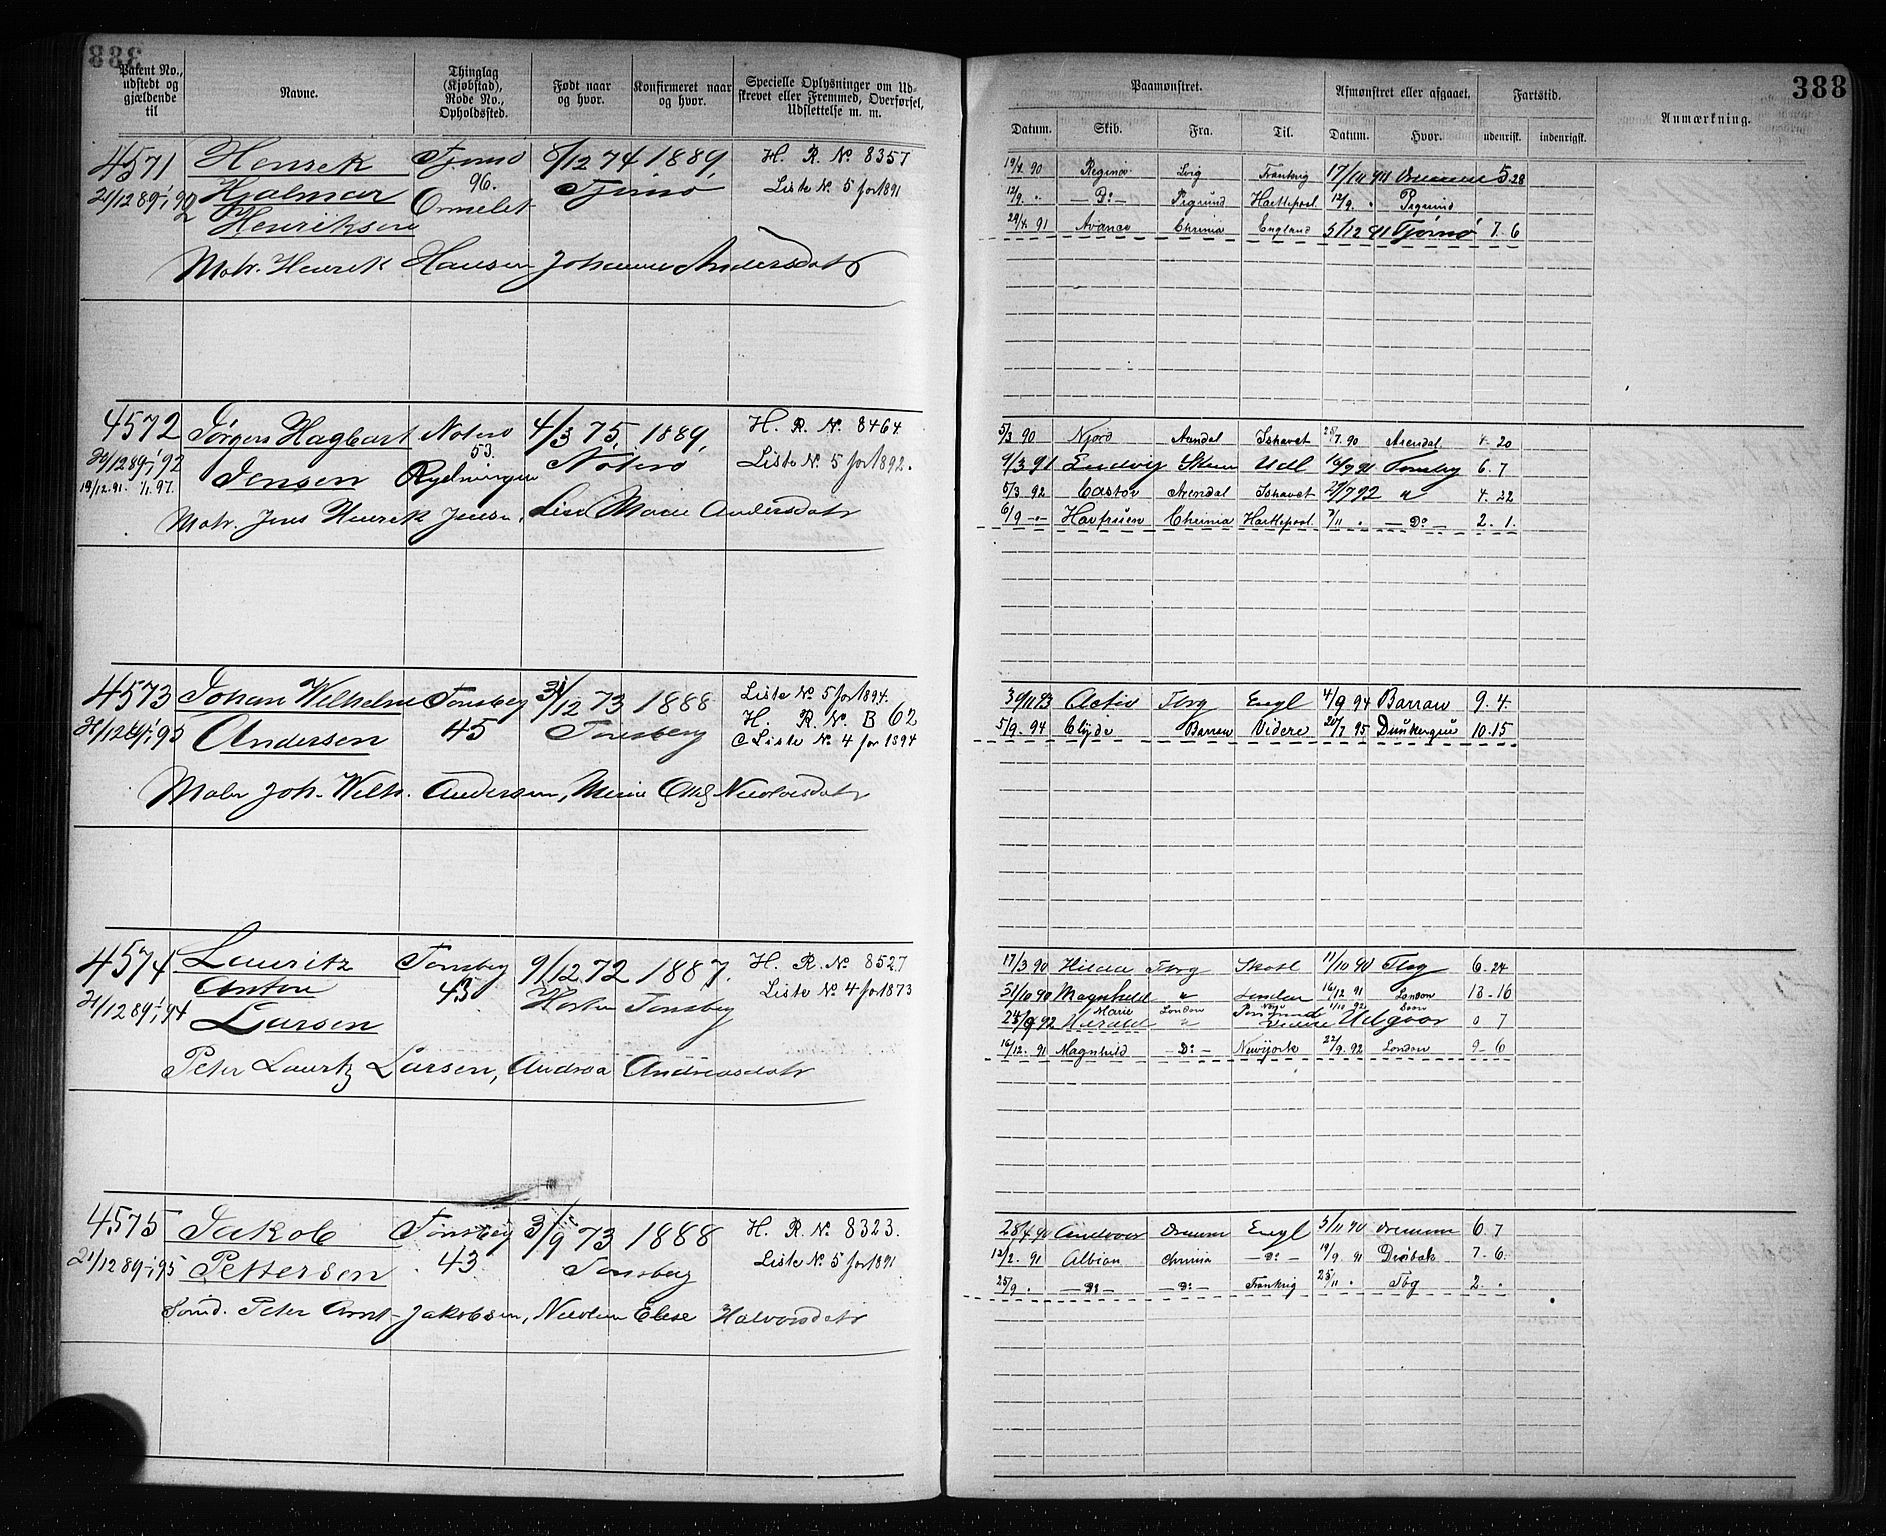 388
Patent No., udstedt og gjældende til
Navne.
Thinglag (Kjøbstad), Rode No., Opholdssted.
Født naar og hvor.
Konfirmeret naar og hvor.
Specielle Oplysninger om Udskrevet eller Fremmed, Overførsel, Udslettelse m. m.
Paamønstret.
Afmønstret eller afgaaet.
Fartstid.
Anmærkning.
Datum. Skib. Fra. Til. Datum. Hvor. udenrikst. indenrigst.
4571 Henrik Tjømø 8/12 74 1889, H. R. No 8357
21/12 89 Hjalmar 96. Tjømø Liste No 5 for 1891
Henriksen Ormelet
Matr. Henrik Hansen Johanne Andersdatr
19/4 90 Regina Lvig Frankrig 17/10 90 Drammen 5.28
12/9 " — Do — Prsgrund Hartlepool 12/9. " Prsgrund
29/4 91 Avance Chrinia England 5/12 91 Tjømø 7. 6
4572 Jørgen Hagbart Nøterø 4/3 75, 1889, H. R. No 8464
21/12 89 1/1 92 Jensen 53. Nøterø Liste No 5 for 1892.
19/12.91. 1/1.97.
Matr. Jens Henrik Jensen, Lise Marie Andersdatr
5/3 90 Njord Arendal Ishavet 28/7.90 Arendal 4. 20
9/3 91 Ludvig Skien Udl 16/9 91 Tønsbg 6. 7
5/3 92 Castor Arendal Ishavet 27/7 92 " 4. 22
6/9 — " — Havfruen Chrinia Hartlepool 3/11 " — Do — 2. 1.
4573 Johan Wilhelm Tønsberg 31/12 73 1888 Liste No 5 for 1894.
21/12 89 1/1 95 Andersen 45 Tønsberg H. R. No B 62
Liste No 4 for 1894
Matr Joh. Wilh. Andersen,
30/11 93 Activ Tbrg Engl 4/9 94 Barrow 9. 4.
5/9. 94 Clyde Barrow Videre 20/7 95 Dunkerque 10.15
4574 Lauritz Tønsberg 9/12 72 1887. H. R. No 8527
21/12 89 1/1 94 Anton 43 Horten Tønsberg Liste No 4 for 1873
Larsen
Peter Lauritz Larsen, Andrea Andreasdatr
17/3 90 Hilda Tbrg Skotl 11/10 90 Tbg 6. 24
31/10 90 Magnhild " 16/12 91 London 13 - 16
Marie London
16/12. 91 Magnhild — Do — Newyork 22/9. 92 London 9 - 6
4575 Jakob Tønsberg 3/9 73 1888 H. R. No 8323.
21/12 89 1/1 95 Pettersen 43. Tønsberg Liste No 5 for 1891
Peter Arnt Jakobsen, Nicoline Elise Halvorsdatr
28/4 90 Drammen Engl 5/11 90 Drammen 6. 7
12/2. 91 Albion Chrinia — Do — 19/9. 91 Drøbak 7. 6.
25/9 " — Do — — Do — Frankrig 25/11 " Tbg 2. "